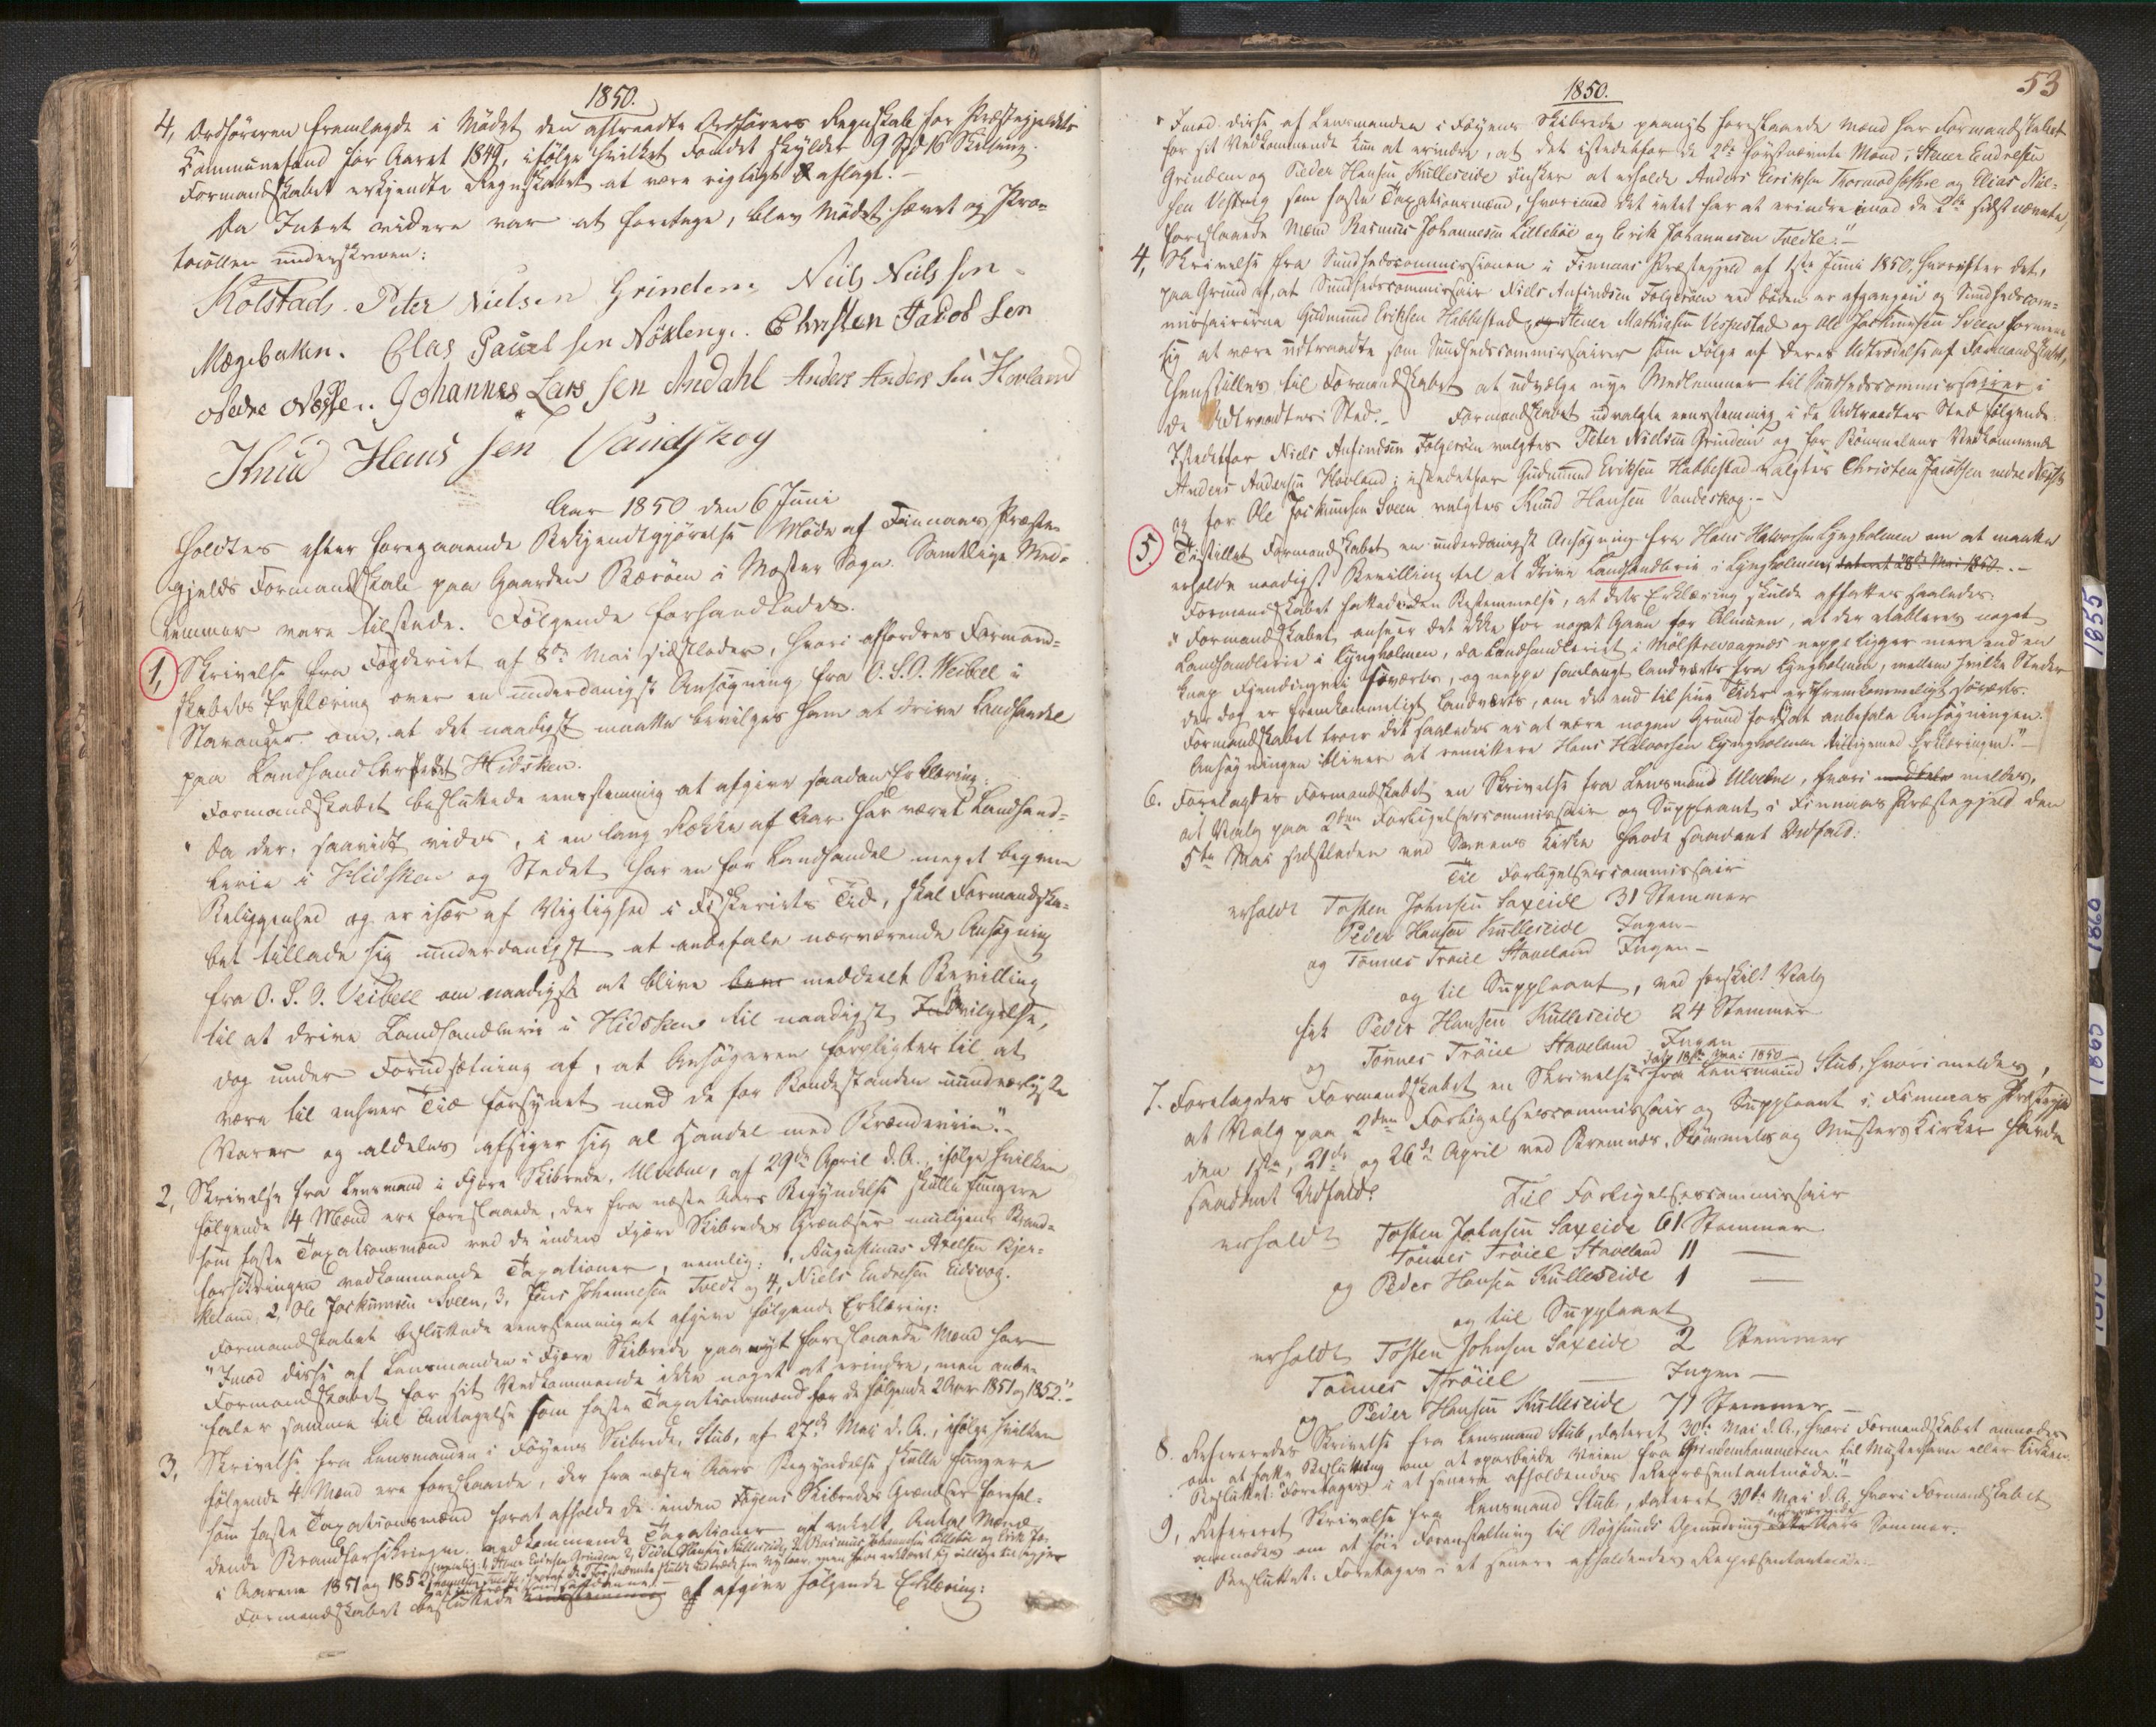 1850.
4, Ordføreren fremlagde i Mødet den aftraadte Ordførers Regnskab for Præstegjeldets
Communefond for Aaret 1849, ifølge hvilket Fondet skylder 9 Spd 16 Skilling.
Formandskabet erkjendte Regnskabet at være rigtigt aflagt. –
Da Intet videre var at foretage, blev Mødet hævet og Pro-
tocollen underskreven:
Kolstad. Peter Nielsen Grindem. Niels Nielssen
Mæyebaken. Elas Paulsen Nøkleng. Christen Jacobsen
Nedre Næsse. Johannes Larssen Andahl Anders Anderssen Hovland
Knud Hanssen Vandskog
Aar 1850 den 6 Juni
holdtes efter foregaaende Bekjendtgjørelse Møde af Finnaas Præste-
gjelds Formandskab paa Gaarden Bærøen i Moster Sogn. Samtlige Med-
lemmer vare tilstede. Følgende forhandledes.
1, Skrivelse fra Fogderiet af 8de Mai sidstleden, hvori affordres Formand-
skabets Erklæring over en underdanigst Ansøgning fra O. S. O. Weibell i
Stavanger om, at det naadigst maatte bevilges ham at drive Landhandel
paa Landhandlerstedet Hidsken.
Formandskabet besluttede eenstemmig at afgive saadan Erklæring:
" Da der, saavidt vides, i en lang Række af Aar har været Landhand-
lerie i Hidsken og Stedet har en for Landhandel meget beqvem
Beliggenhed og er især af Vigtighed i Fiskeriets Tid, skal Formandska-
bet tillade sig underdanigst at anbefale nærværende Ansøgning
fra O. S. O. Veibell om naadigst at blive meddeelt Bevilling
til at drive Landhandlerie i Hidsken til naadigst Bevilgelse,
dog under Forudsætning af, at Ansøgeren forpligtes til at
være til enhver Tid forsynet med de for Bondestanden nundværligste
Varer og aldeles afsiger sig al Handel med Brændeviin." –
2, Skrivelse fra Lensmand i Fjære Skibrede, Ulvebne, af 29de April d. A., ifølge hvilken
følgende 4 Mænd ere foreslaaede, der fra næste Aars Begyndelse skulle fungere
som faste Taxationsmænd ved de inden Fjære Skibredes Grændser muligens Brand-
forsikringen vedkommende Taxationer, nemlig: 1, Augustinus Axelsen Bjer-
keland, 2, Ole Jockumsen Sveen, 3, Jens Johannesen Tvedt og 4, Niels Endresen Eidsvog.
Formandskabet besluttede eenstemmig at afgive følgende Erklæring:
"Imod disse af Lensmanden i Fjære Skibrede paa nyt foreslaaede Mænd har
Formandskabet for sit Vedkommende ikke noget at erindre, men anbe-
faler samme til Antagelse som faste Taxationsmænd for de følgende 2 Aar 1851 og 1852." –
3, Skrivelse fra Lensmanden i Føyens Skibrede, Stub, af 27de Mai d. A., ifølge hvilken
følgende 4 Mænd ere foreslaaede, der fra næste Aars Begyndelse skulle fungere
som faste Taxationsmænd forat afholde de inden Føyens Skibredes Grændser forefal-
dende Brandforsikringen vedkommende Taxationer af enkelt Antal Mænd
i Aarene 1851 og 1852, nemlig: 1, Stener Endresen Grindem 2, Peder Hansen Kulleseide, 3, Rasmus Johannesen Lillebøe og Erik Jo-
hannesen Tvedte
Formandskabet besluttede eenstemmig at afgive følgende Erklæring:
53
1850.
" Imod disse af Lensmanden i Føyens Skibrede paanyt foreslaaede Mænd har Formandskabet
for sit Vedkommende kun at erindre, at det istedetfor de 2de førstnævnte Mænd, Stener Endresen
Grindem og Peder Hansen Kulleseide ønsker at erholde Anders Eriksen Thormodsæther og Elias Niel-
sen Vestvig som faste Taxationsmænd, hvorimod det intet har at erindre imod de 2de sidstnævnte,
foreslaaede Mænd Rasmus Johannesen Lillebøe og Erik Johannesen Tvedte." –
4, Skrivelse fra Sundhedscommissionen i Finnaas Præstegjeld af 1ste Juni 1850, hvorefter det,
paa Grund af, at Sundhedscommissair Niels Anfindsen Folgerøen ved Døden er afgangen og Sundhedscom-
missairerne Gudmund Eriksen Habbestad, Stener Mathiasen Vespestad og Ole Jockumsen Sveen formene
sig at være udtraadte som Sundhedscommissairer som Følge af deres Udtrædelse af Formandskabet,
henstilles til Formandskabet at udvælge nye Medlemmer til Sundhedscommissairer i
de Udtraadtes Sted. – Formandskabet udvalgte eenstemmig i de Udtraadtes Sted følgende:
Istedetfor Niels Anfindsen Folgerøen valgtes Peter Nielsen Grindem og for Bømmelens Vedkommende
Anders Andersen Hovland; istedetfor Gudmund Eriksen Habbestad valgtes Christen Jacobsen nedre Næsse
og for Ole Jockumsen Sveen valgtes Knud Hansen Vandskog. –
5. Tilstillet Formandskabet en underdanigst Ansøgning fra Hans Halvorsen Lyngholmen om at maatte
erholde naadigst Bevilling til at drive Landhandlerie i Lyngholmen, dateret 28de Mai 1850. –
Formandskabet fattede den Bestemmelse, at dets Erklæring skulde affattes saaledes:
" Formandskabet anseer det ikke for noget Gavn for Almuen, at der etableres noget
Landhandlerie i Lyngholmen, da Landhandleriet i Mølstrevaagnæs neppe ligger mere end en
knap Fjerdingvei søværts, og neppe saalangt landværts fra Lyngholmen, mellem hvilke Steder
der dog er fremkommeligt landværts, om det end til sine Tider er ufremkommeligt søværts.
Formandskabet troer det saaledes ei at være nogen Grund forat anbefale Ansøgningen.
Ansøgningen bliver at remittere Hans Halvorsen Lyngholmen tilligemed Erklæringen." –
6. Forelagdes Formandskabet en Skrivelse fra Lensmand Ulvebne, hvori meldes,
at Valg paa 2den Forligelsescommissair og Suppleant i Finnaas Præstegjeld den
5te Mai sidstleden ved Sveens Kirke havde saadant Udfald:
Til Forligelsescommissair
erholdt Tosten Johnsen Saxeide 31 Stemmer
Peder Hansen Kulleseide Ingen –
og Tønnes Trøiel Staveland Ingen –
og til Suppleant, ved særskilt Valg
fik Peder Hansen Kulleseide 24 Stemmer
og Tønnes Trøiel Staveland Ingen
7. Forelagdes Formandskabet en Skrivelse dat. 18de Mai 1850 fra Lensmand Stub, hvori meldes,
at Valg paa 2den Forligelsescommissair og Suppleant i Finnaas Præstegjeld
den 1ste, 21de og 26de April ved Bremnæs, Bømmelens og Mosters Kirker havde
saadant Udfald:
Til Forligelsescommissair
erholdt Tosten Johnsen Saxeide 61 Stemmer
Tønnes Trøiel Staveland 11 —
og Peder Hansen Kulleseide 1 —
og til Suppleant
erholdt Tosten Johnsen Saxeide 2 Stemmer
Tønnes Trøiel — Ingen —
og Peder Hansen Kulleseide 71 Stemmer. –
8. Refereredes Skrivelse fra Lensmand Stub, dateret 30te Mai d. A., hvori Formandskabet anmodes
om at fatte Beslutning om at oparbeide Veien fra Grindemhammeren til Mosterhavn eller Kirken.
Besluttet: "Foretages i et senere afholdendes Repræsentantmøde." –
9, Refereret Skrivelse fra Lensmand Stub, dateret 30te Mai d. A., hvori Formandskabet
anmodes om at føie Foranstaltning til Røgsunds Opmudring nærværende Sommer.
Besluttet: Foretages i et senere afholdendes Repræsentantmøde.
1855
1860
1865